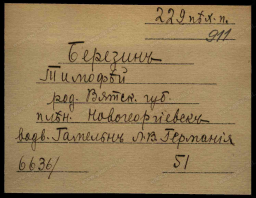 229 пѣх. п.
911
Березинъ
Тимофѣй
род. Вятск. губ.
плѣн. Новогеоргіевскъ
водв. Гамельнъ Л.В. Германія
6636/ 51